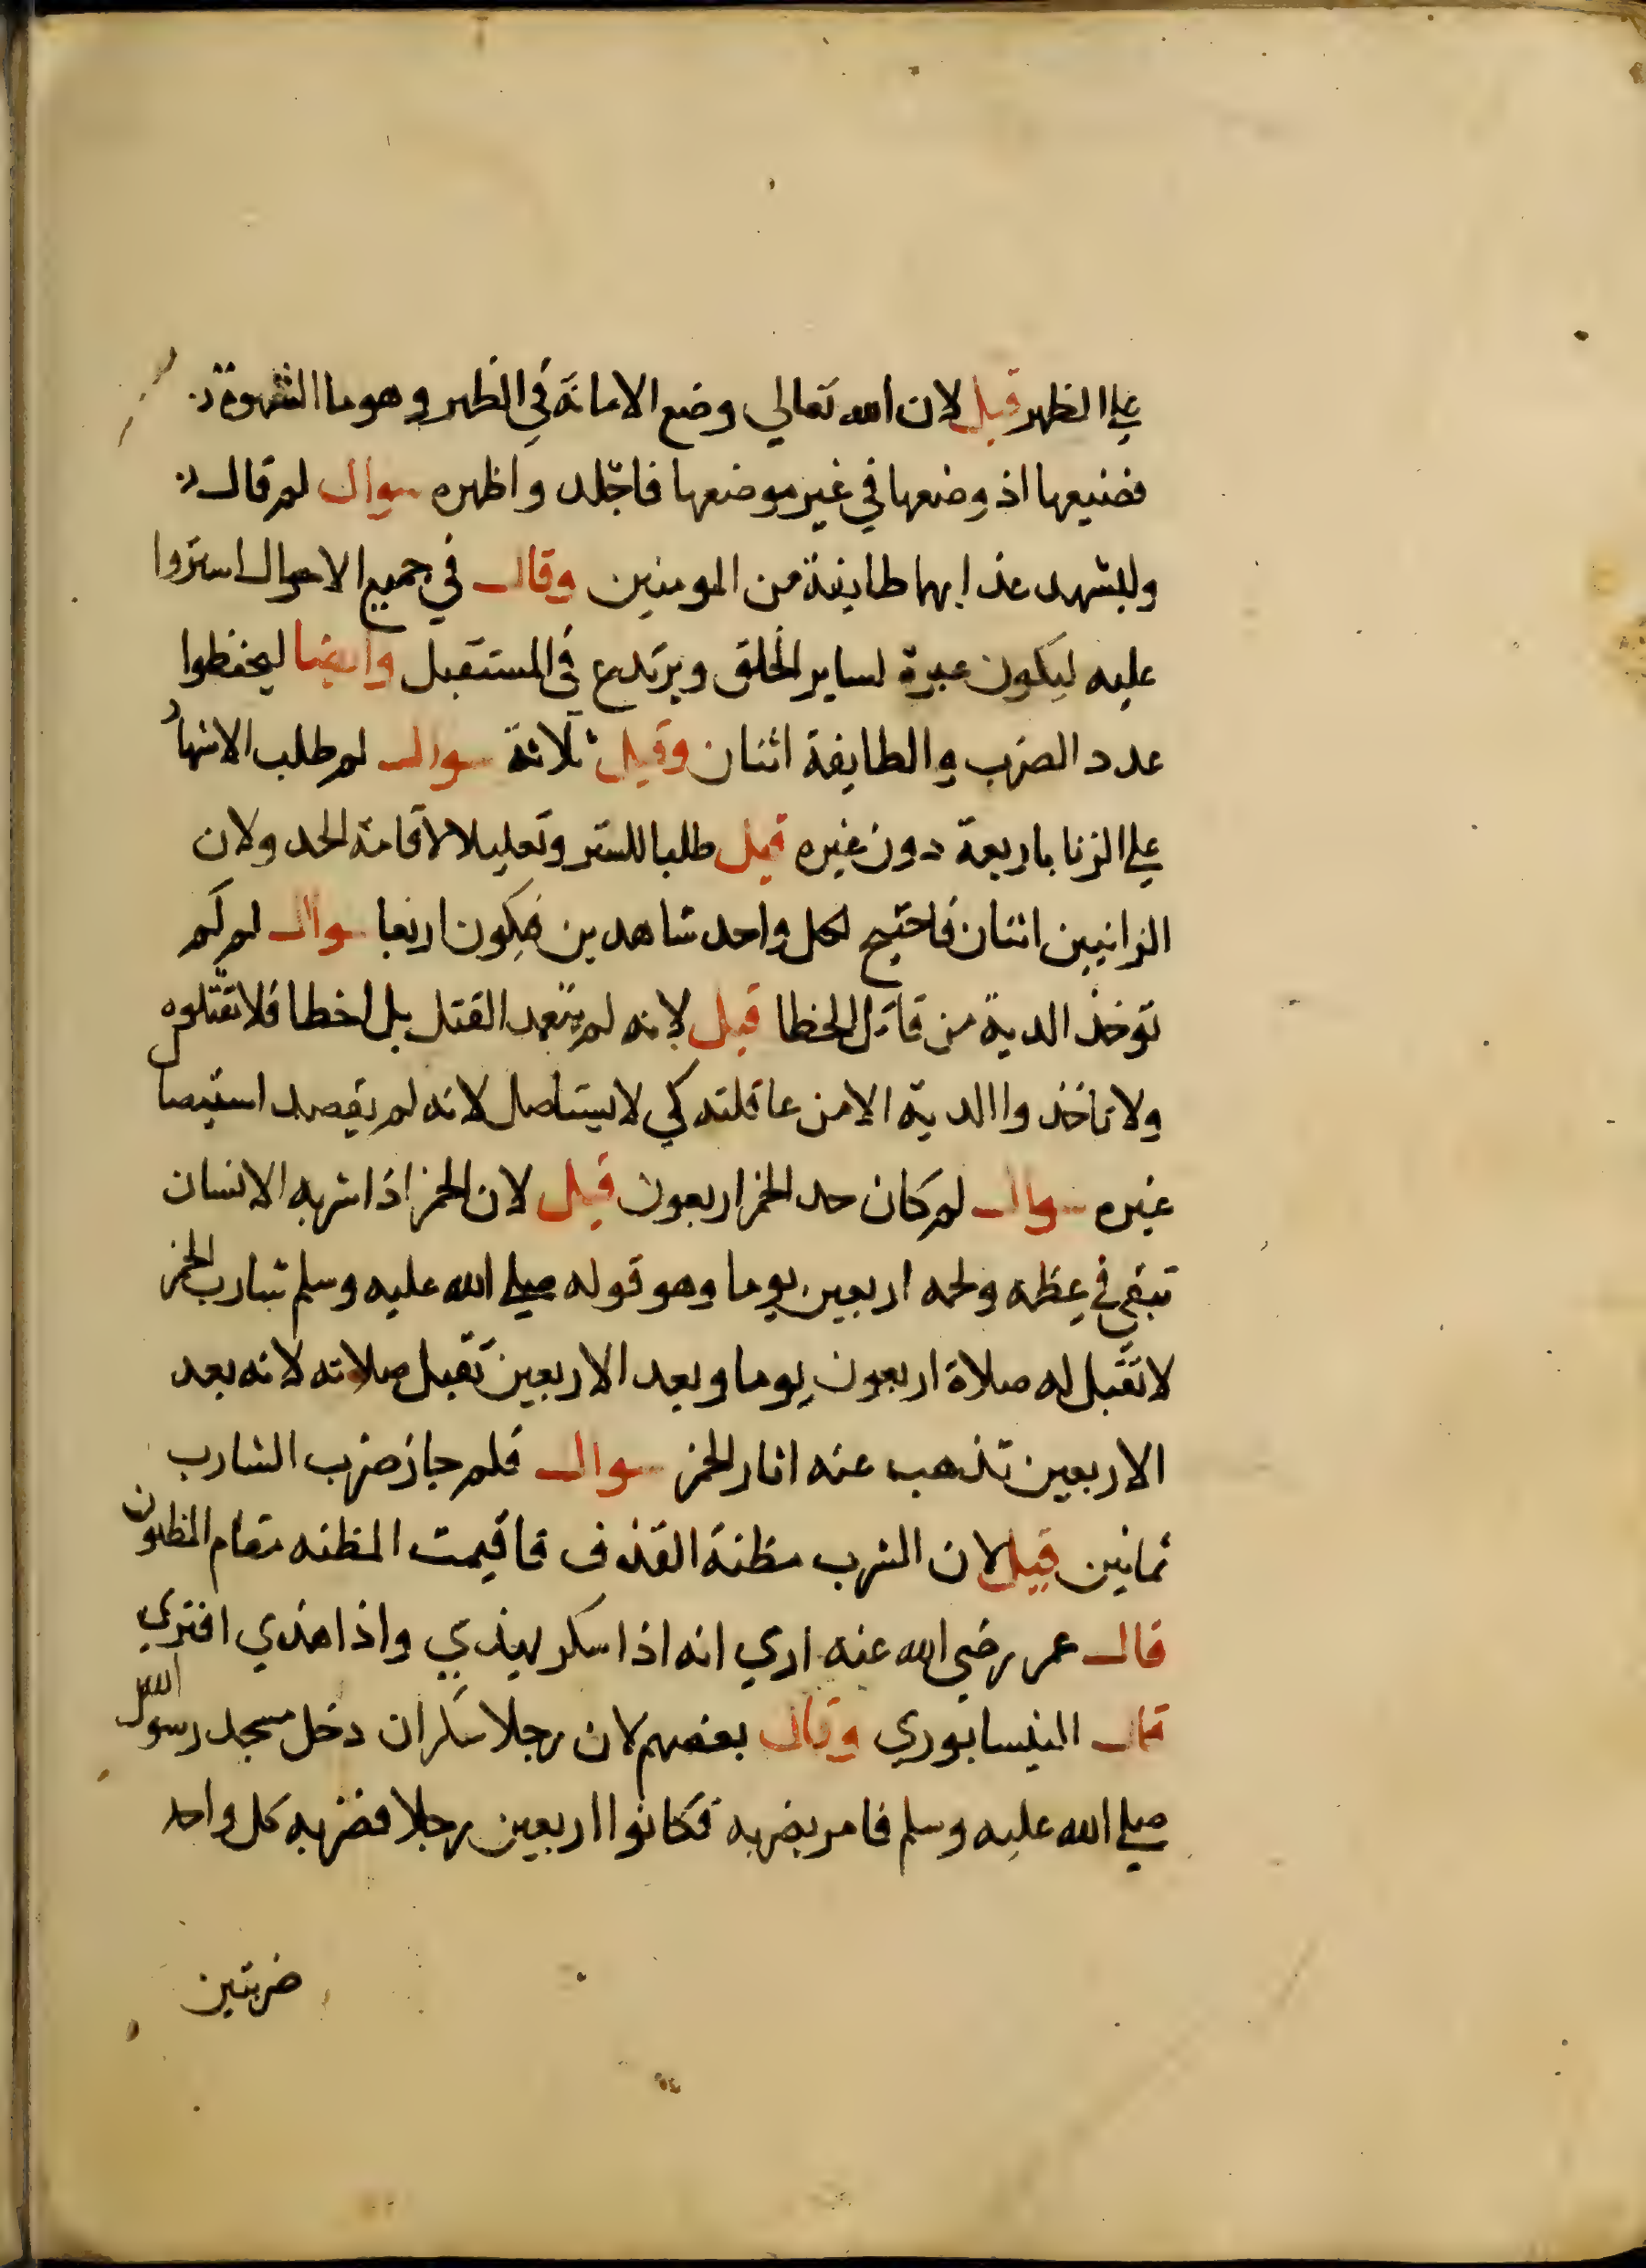 علي الظهر قيل لان الله تعالي وضع الامانة في الظهر وهو ما الشهوة
فضيعها اذ وضعها في غير موضعها فاجلد واظهره سوال لم قال
وليشهد عذابهما طايفة من المومنين وقال في جميع الاحوال استروا
عليه ليكون عبرة لساير الخلق ويرتدع في المستقبل وايضا ليحفظوا
عدد الضرب والطايفة اثنان وقيل ثلاثة سوال لم طلب الاشهاد
علي الزنا باربعة دون غيره قيل طلبا للستر وتعليلا لاقامة الحد ولان
الزانيين اثنان فاحتيج لكل واحد شاهدين فيكون اربعا سوال لم لم
توخذ الدية من قاتل الخطا قيل لانه لم يتعمد القتل بل اخطا فلا تقتلوه
ولا تاخذوا الدية الا من عاقلته كي لا يستاصل لانه لم يقصد استيصا
غيره سوال لم كان حد الخمر اربعون قيل لان الخمر اذا شربه الانسان
تبقي في عظمه ولحمه اربعين يوما وهو قوله صلي الله عليه وسلم شارب الخمر
لا تقبل له صلاة اربعون يوما وبعد الاربعين تقبل صلاته لانه بعد
الاربعين تذهب عنه اثار الخمر سوال فلم جاز ضرب الشارب
ثمانين قيل لان الشرب مظنة القذف فاقيمت المظنه مقام المظنون
قال عمر رضي الله عنه اري انه اذا سكر يهذي واذا هذي افتري
قال النيسابوري وقال بعضهم لان رجلا سكران دخل مسجد رسول الله
صلي الله عليه وسلم فامر بضربه فكانوا اربعين رجلا فضربه كل واحد
ضربتين